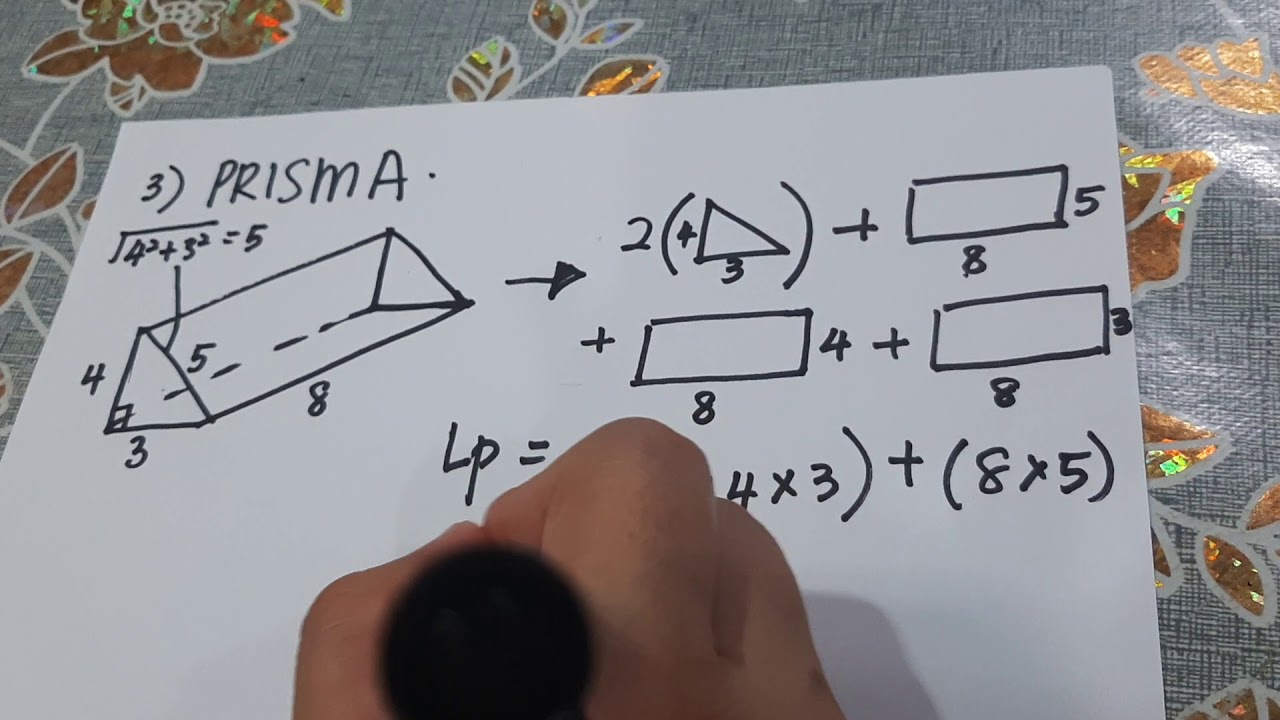 3) PRISMA.
√4²+3² = 5
4
5
3
8
→ 2(4 3) + 5
8
+ 4 + 3
8 8
Lp = 4 × 3) + (8 × 5)